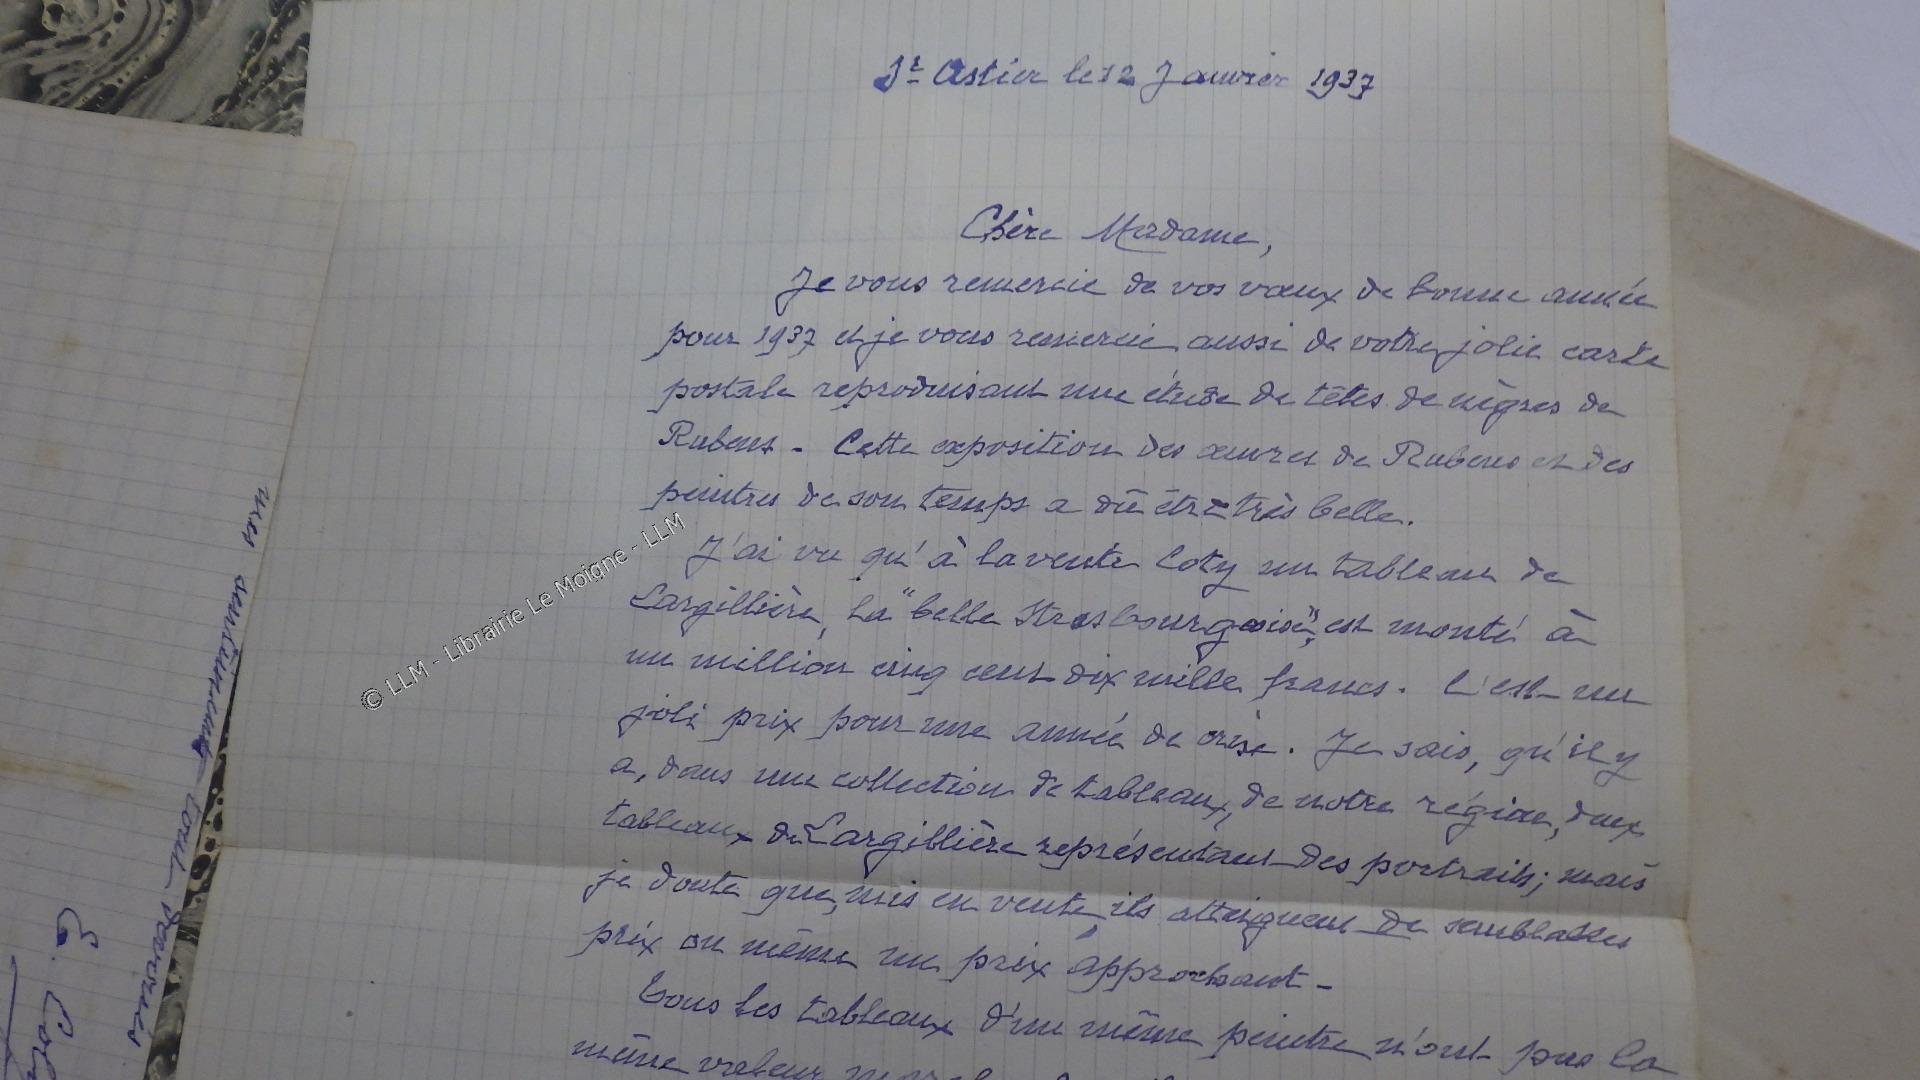 St Astier le 12 Janvier 1937
Chère Madame,
Je vous remercie de vos vœux de bonne année
pour 1937 et je vous remercie aussi de votre jolie carte
postale reproduisant une étude de têtes de nègres de
Rubens - Cette exposition des œuvres de Rubens et des
peintres de son temps a dû être très belle.
J'ai vu qu'à la vente Coty un tableau de
Largillière, La "belle Strasbourgeoise", est monté à
un million cinq cent dix mille francs. C'est un
joli prix pour une année de crise. Je sais, qu'il y
a, dans une collection de tableaux, de notre région, deux
tableaux de Largillière représentant des portraits; mais
je doute que, mis en vente, ils atteignent de semblables
prix ou même un prix approchant -
Tous les tableaux d'un même peintre n'ont pas la
même valeur
sentiments tout dévoués
E.
© LLM - Librairie Le Moigne - LLM